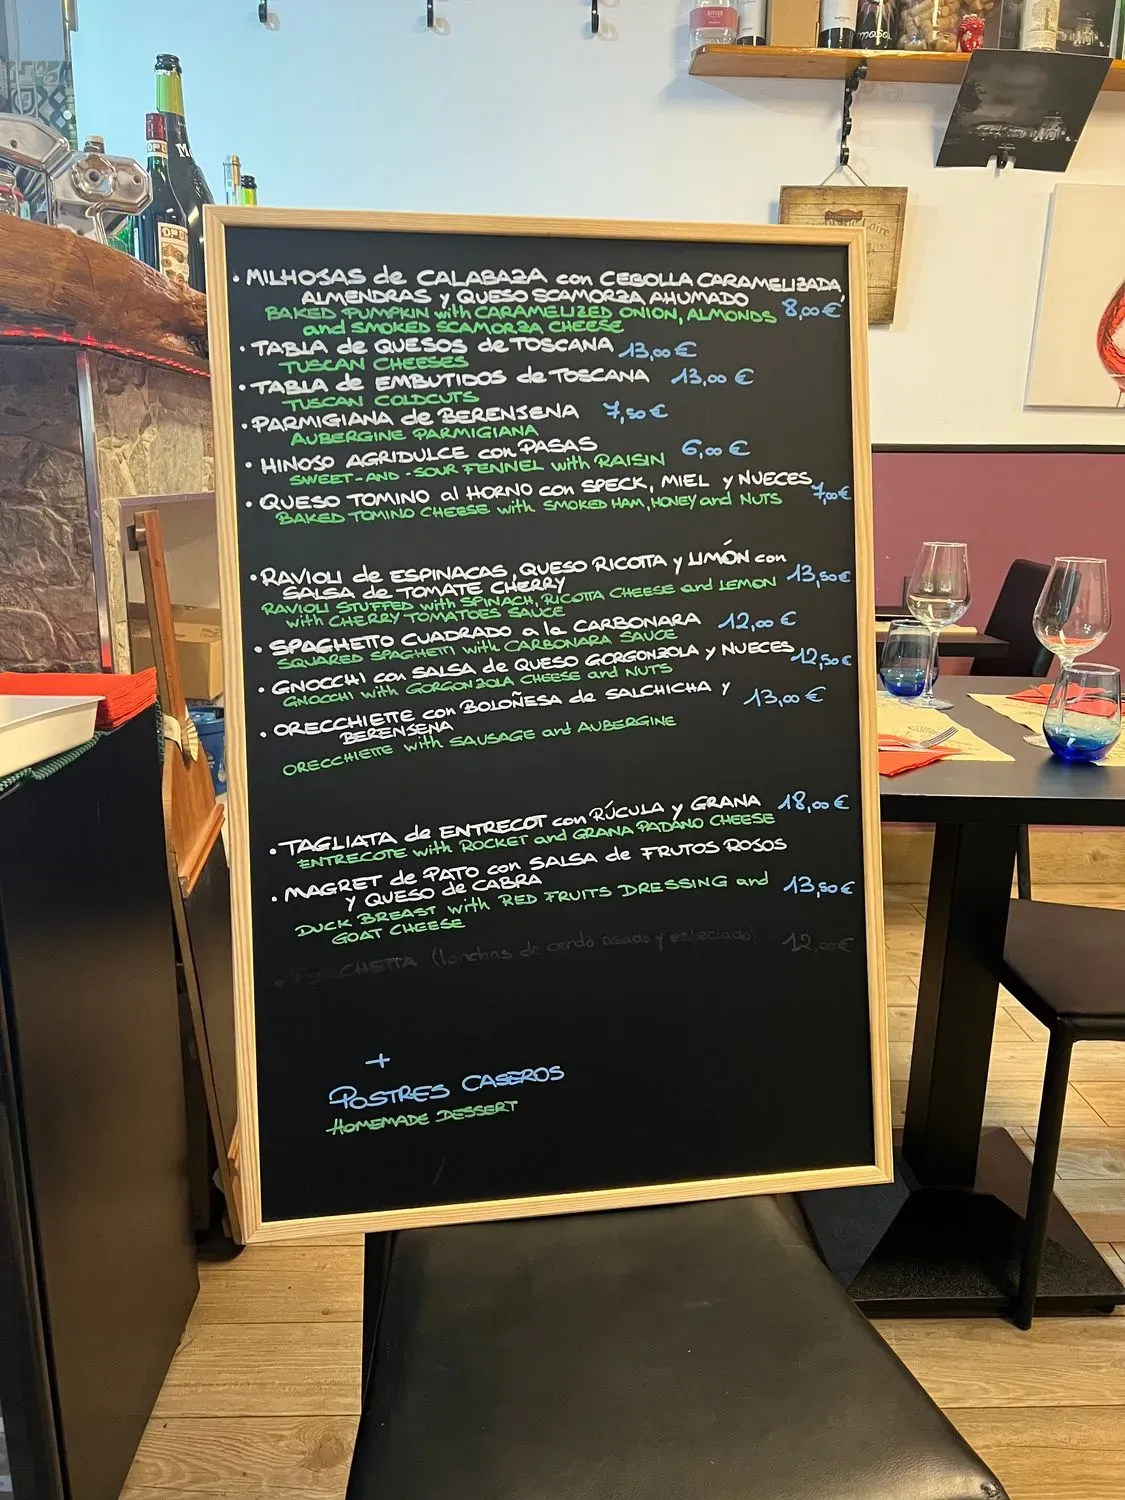 • MILHOJAS de CALABAZA con CEBOLLA CARAMELIZADA,
ALMENDRAS y QUESO SCAMORZA AHUMADO
BAKED PUMPKIN with CARAMELIZED ONION, ALMONDS 8,00 €
and SMOKED SCAMORZA CHEESE
• TABLA de QUESOS de TOSCANA 13,00 €
TUSCAN CHEESES
• TABLA de EMBUTIDOS de TOSCANA 13,00 €
TUSCAN COLDCUTS
• PARMIGIANA de BERENJENA 7,50 €
AUBERGINE PARMIGIANA
• HINOJO AGRIDULCE con PASAS 6,00 €
SWEET-AND-SOUR FENNEL with RAISIN
• QUESO TOMINO al HORNO con SPECK, MIEL y NUECES 7,00 €
BAKED TOMINO CHEESE with SMOKED HAM, HONEY and NUTS
• RAVIOLI de ESPINACAS, QUESO RICOTTA y LIMÓN con 13,50 €
SALSA de TOMATE CHERRY
RAVIOLI STUFFED with SPINACH, RICOTTA CHEESE and LEMON
with CHERRY TOMATOES SAUCE
• SPAGHETTO CUADRADO a la CARBONARA 12,00 €
SQUARED SPAGHETTI with CARBONARA SAUCE
• GNOCCHI con SALSA de QUESO GORGONZOLA y NUECES 12,50 €
GNOCCHI with GORGONZOLA CHEESE and NUTS
• ORECCHIETTE con BOLOÑESA de SALCHICHA y 13,00 €
BERENJENA
ORECCHIETTE with SAUSAGE and AUBERGINE
• TAGLIATA de ENTRECOT con RÚCULA y GRANA 18,00 €
ENTRECOTE with ROCKET and GRANA PADANO CHEESE
• MAGRET de PATO con SALSA de FRUTOS ROJOS
y QUESO de CABRA 13,50 €
DUCK BREAST with RED FRUITS DRESSING and
GOAT CHEESE
(lonchas de cerdo asado y especiado) 12,00 €
+
POSTRES CASEROS
HOMEMADE DESSERT